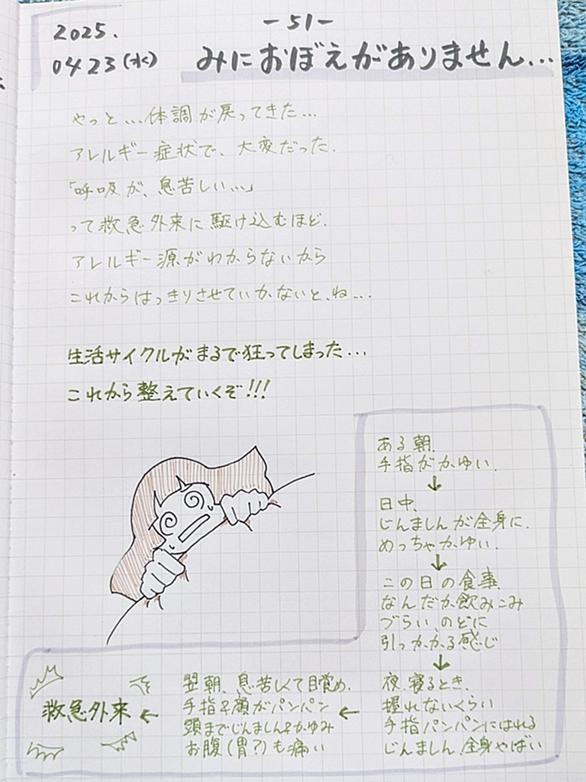 2025.
-51-
04.23(水)
みにおぼえがありません...
やっと...体調が戻ってきた...
アレルギー症状で、大変だった.
「呼吸が、息苦しい...」
って救急外来に駆け込むほど.
アレルギー源がわからないから
これからはっきりさせていかないと、ね...
生活サイクルがまるで狂ってしまった...
これから整えていくぞ!!!
ある朝.
手指がかゆい.
↓
日中.
じんましんが全身に.
めっちゃかゆい.
↓
この日の食事.
なんだか飲みこみ
づらい のどに
引っかかる感じ
↓
夜.寝るとき.
握れないくらい
手指パンパンにはれる
じんましん.全身やばい
←
翌朝、息苦しくて目覚め.
手指&顔がパンパン
頭までじんましん&かゆみ
お腹(胃?)も痛い
←
救急外来